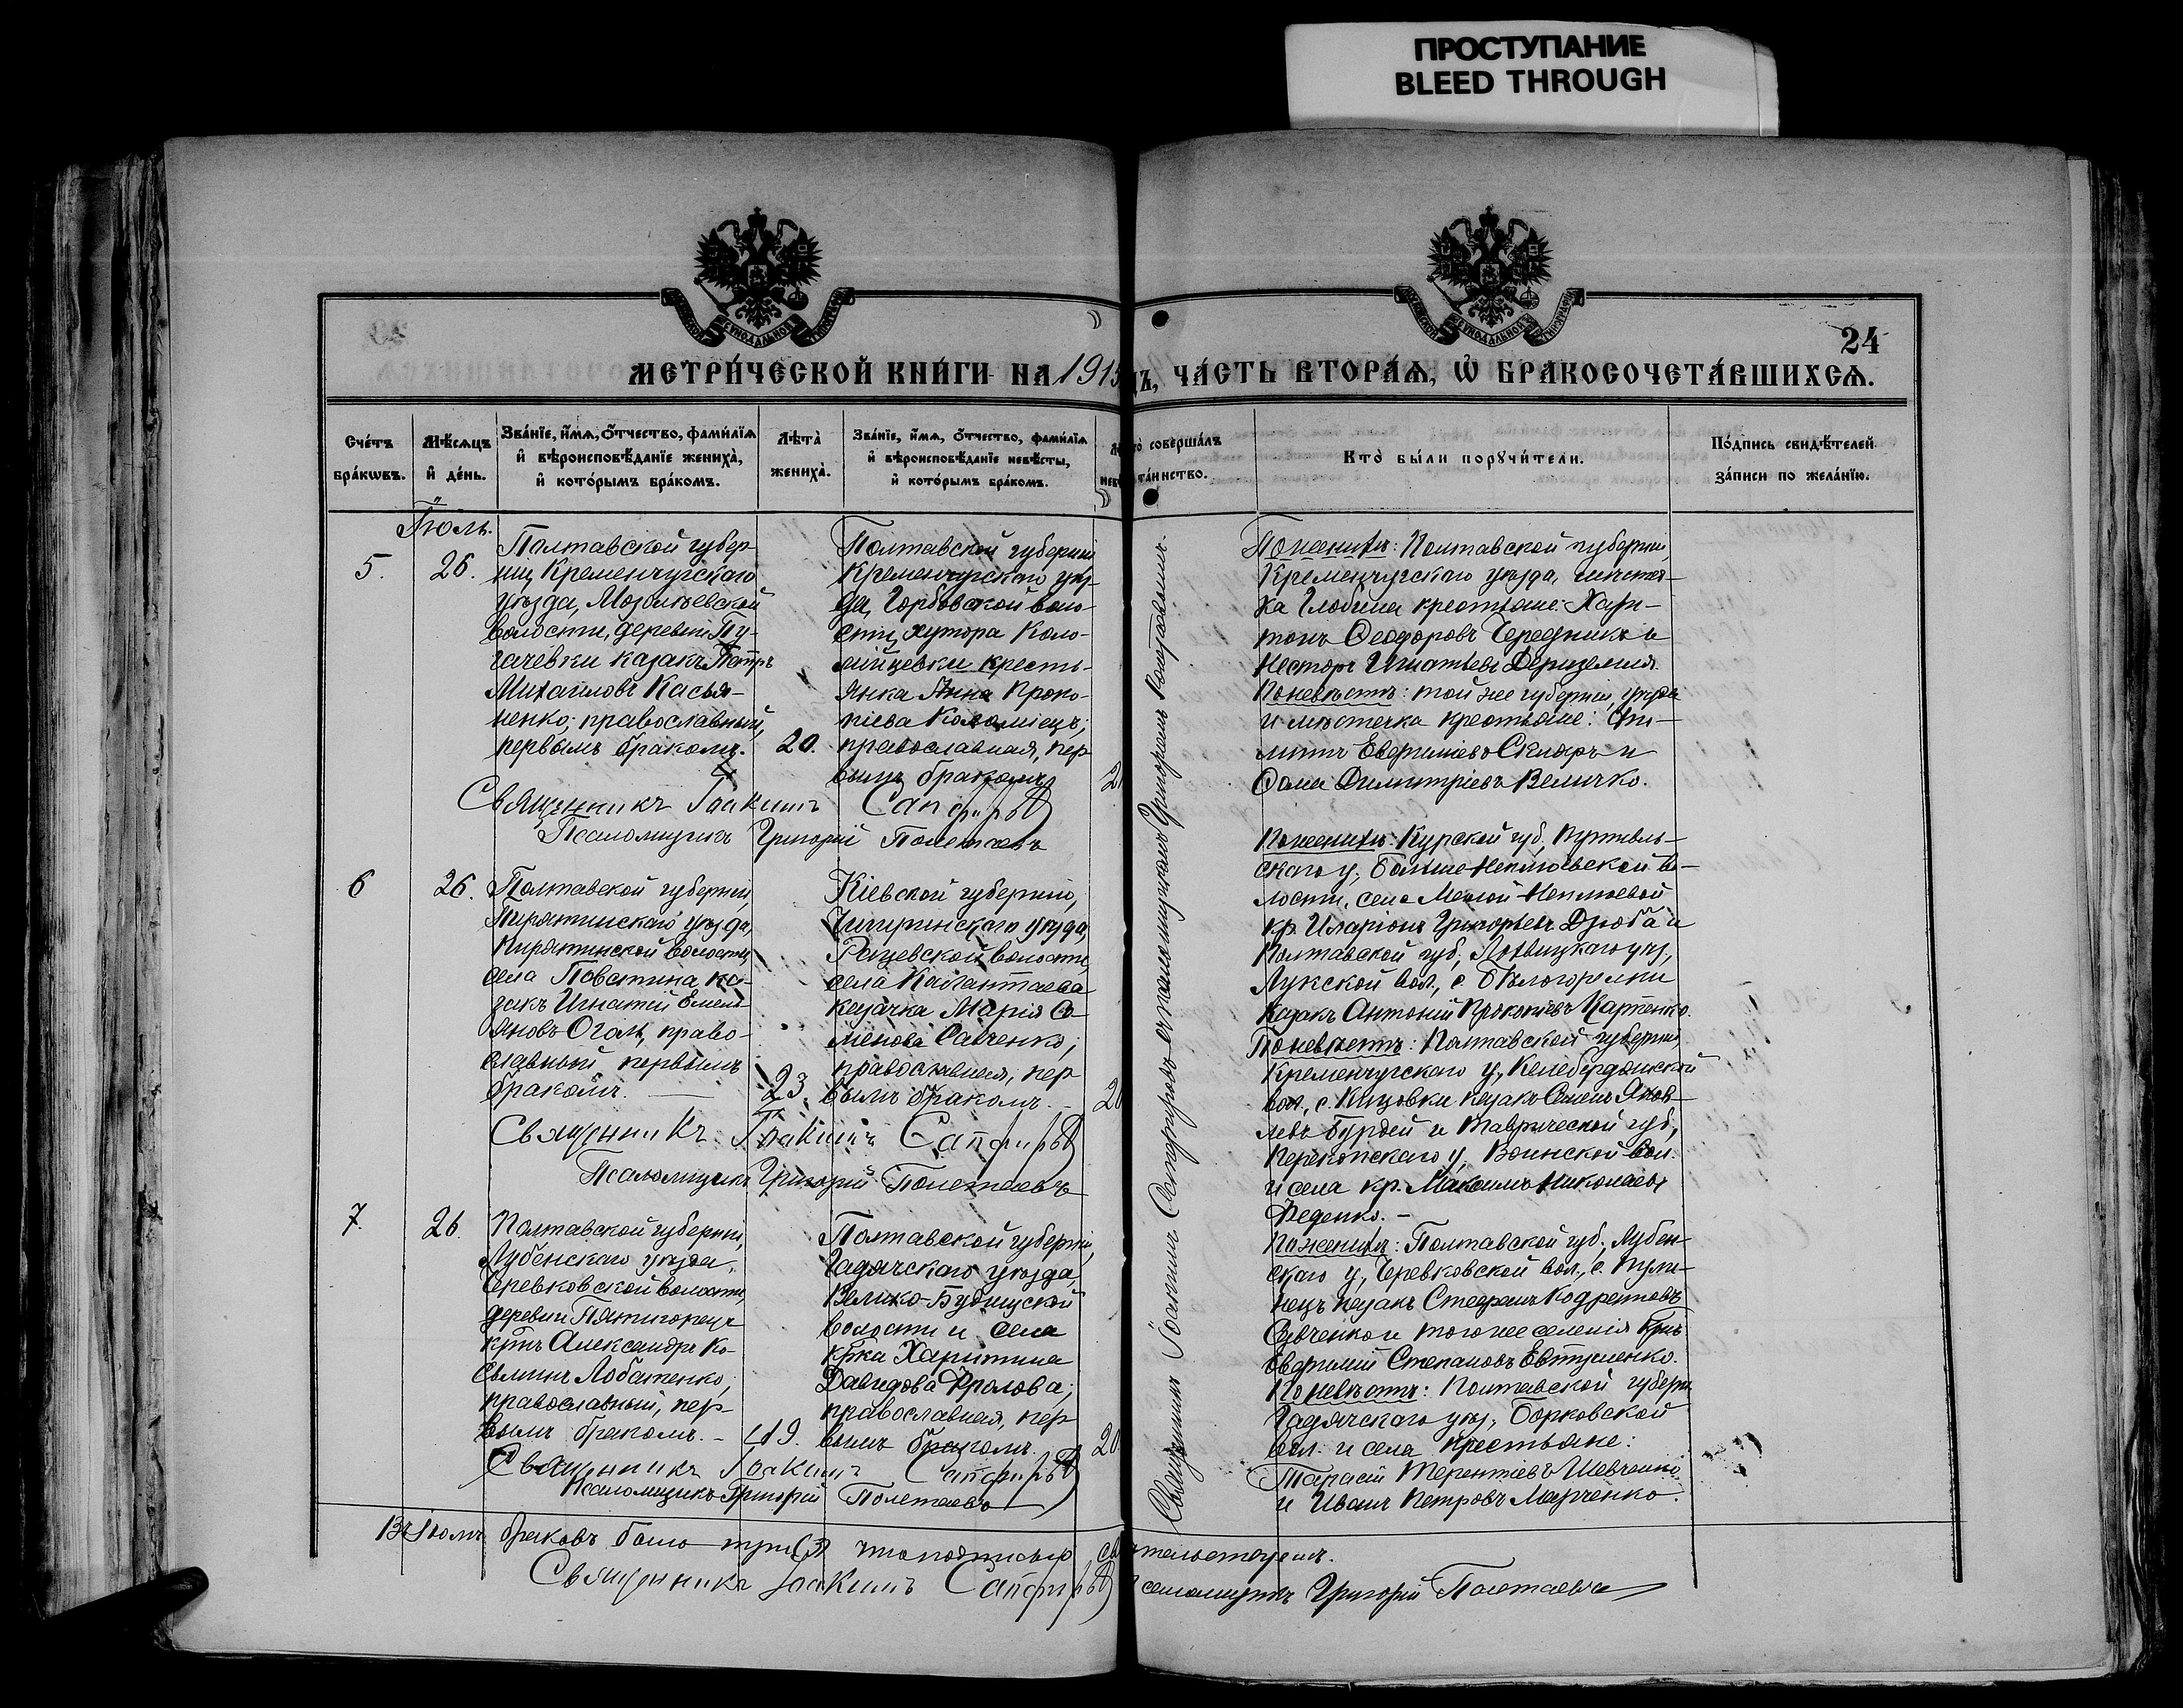 ПРОСТУПАНИЕ
BLEED THROUGH
24
МЕТРИ́ЧЕСКОЙ КНИ́ГИ НА 1915
ЧА́СТЬ ВТОРА́Ѧ, Ѽ БРАКОСОЧЕТА́ВШИХСѦ.
Сче́тъ бра́кѡвъ.
Мѣ́сяцъ и҆ де́нь.
Зва́нїе, и҆́мѧ, ѻ҆́тчество, фами́лїѧ и҆ вѣроисповѣ́данїе жениха̀, и҆ кото́рымъ бра́комъ.
Лѣта̀ жениха̀.
Зва́нїе, и҆́мѧ, ѻ҆́тчество, фами́лїѧ и҆ вѣроисповѣ́данїе невѣ́сты, и҆ кото́рымъ бра́комъ.
соверша́лъ
та́инство.
Кто̀ бы́ли порꙋчи́тели.
По́дпись свидѣ́телей
за́писи по жела́нїю.
Іюль.
5.
26.
Полтавской губер-
ніи, Кременчугскаго
уѣзда, Мозолѣевской
волости, деревни Пу-
гачевки казакъ Петръ
Михаиловъ Касья-
ненко; православный,
первымъ бракомъ.
20.
Полтавской губерніи
Кременчугскаго уѣз-
да, Горбовской воло-
сти, хутора Коло-
мійцевки кресть-
янка Анна Проко-
піева Коломіецъ;
православная, пер-
вымъ бракомъ
Поженихъ: Полтавской губерніи
Кременчугскаго уѣзда, мѣстеч-
ка Глобина крестьяне: Хари-
тонъ Ѳеодоровъ Чередникъ и
Несторъ Игнатьевъ Дериземля
Поневѣстѣ: той же губерніи, уѣзда
и мѣстечка крестьяне:
Скляръ и
Ѳома Димитріевъ Величко.
Священникъ Іоакимъ Сапфировъ
Псаломщикъ Григорій Полетаевъ
6
26.
Полтавской губерніи,
Пирятинскаго уѣзда,
Пирятинской волости,
села Повстина ка-
закъ Игнатій Емель-
яновъ Оголь, право-
славный первымъ
бракомъ.
23.
Кіевской губерніи,
Чигиринскаго уѣзда,
Рацевской волости,
села Калантаева
казачка Марія Се-
менова Савченко;
православная, пер-
вымъ бракомъ.
Поженихъ: Курской губ. Путивль-
скаго у., Больше-Неплюевской во-
лости, села Малой-Неплюевой
кр. Иларіонъ Григорьевъ Дзюба и
Полтавской губ., Лохвицкаго уѣз.,
Лукской вол., с. Бѣлогорелки
казакъ Антоній Прокопіевъ Карпенко.
Поневѣстѣ: Полтавской губерніи
Кременчугскаго у., Келебердянской
вол., с. казакъ Семенъ Яков-
левъ Бурдей и Таврической губ.,
Перекопскаго у., Воинской вол.
и села кр. Максимъ Николаевъ
Феденко.
Священникъ Іоакимъ Сапфировъ
Псаломщикъ Григорій Полетаевъ
7.
26.
Полтавской губерніи,
Лубенскаго уѣзда,
Черевковской волости,
деревни Пятигорецъ
крнъ Александръ Ко-
сьминъ Лобатенко,
православный, пер-
вымъ бракомъ.
19.
Полтавской губерніи,
Гадячскаго уѣзда,
Велико-Будищской
волости и села
крка Харитина
Давидова Фролова;
православная, пер-
вымъ бракомъ.
20
Поженихъ: Полтавской губ., Лубен-
скаго у., Черевковской вол., с.
казакъ Стефанъ Кодратовъ
и того же селенія крнъ
Евфимій Степановъ Евтушенко.
Поневѣстѣ: Полтавской губерн.
Гадячскаго уѣз., Борковской
вол. и села крестьяне:
Тарасій Терентіевъ Шевченко
и Иванъ Петровъ Марченко.
Священникъ Іоакимъ Сапфировъ
Псаломщикъ Григорій Полетаевъ
Священникъ Іоакимъ Сапфировъ съ псаломщикомъ Григоріемъ Полетаевымъ.
Въ Іюлѣ браковъ было три (3) что подписью свидѣтельствуемъ.
Священникъ Іоакимъ Сапфировъ Псаломщикъ Григорій Полетаевъ